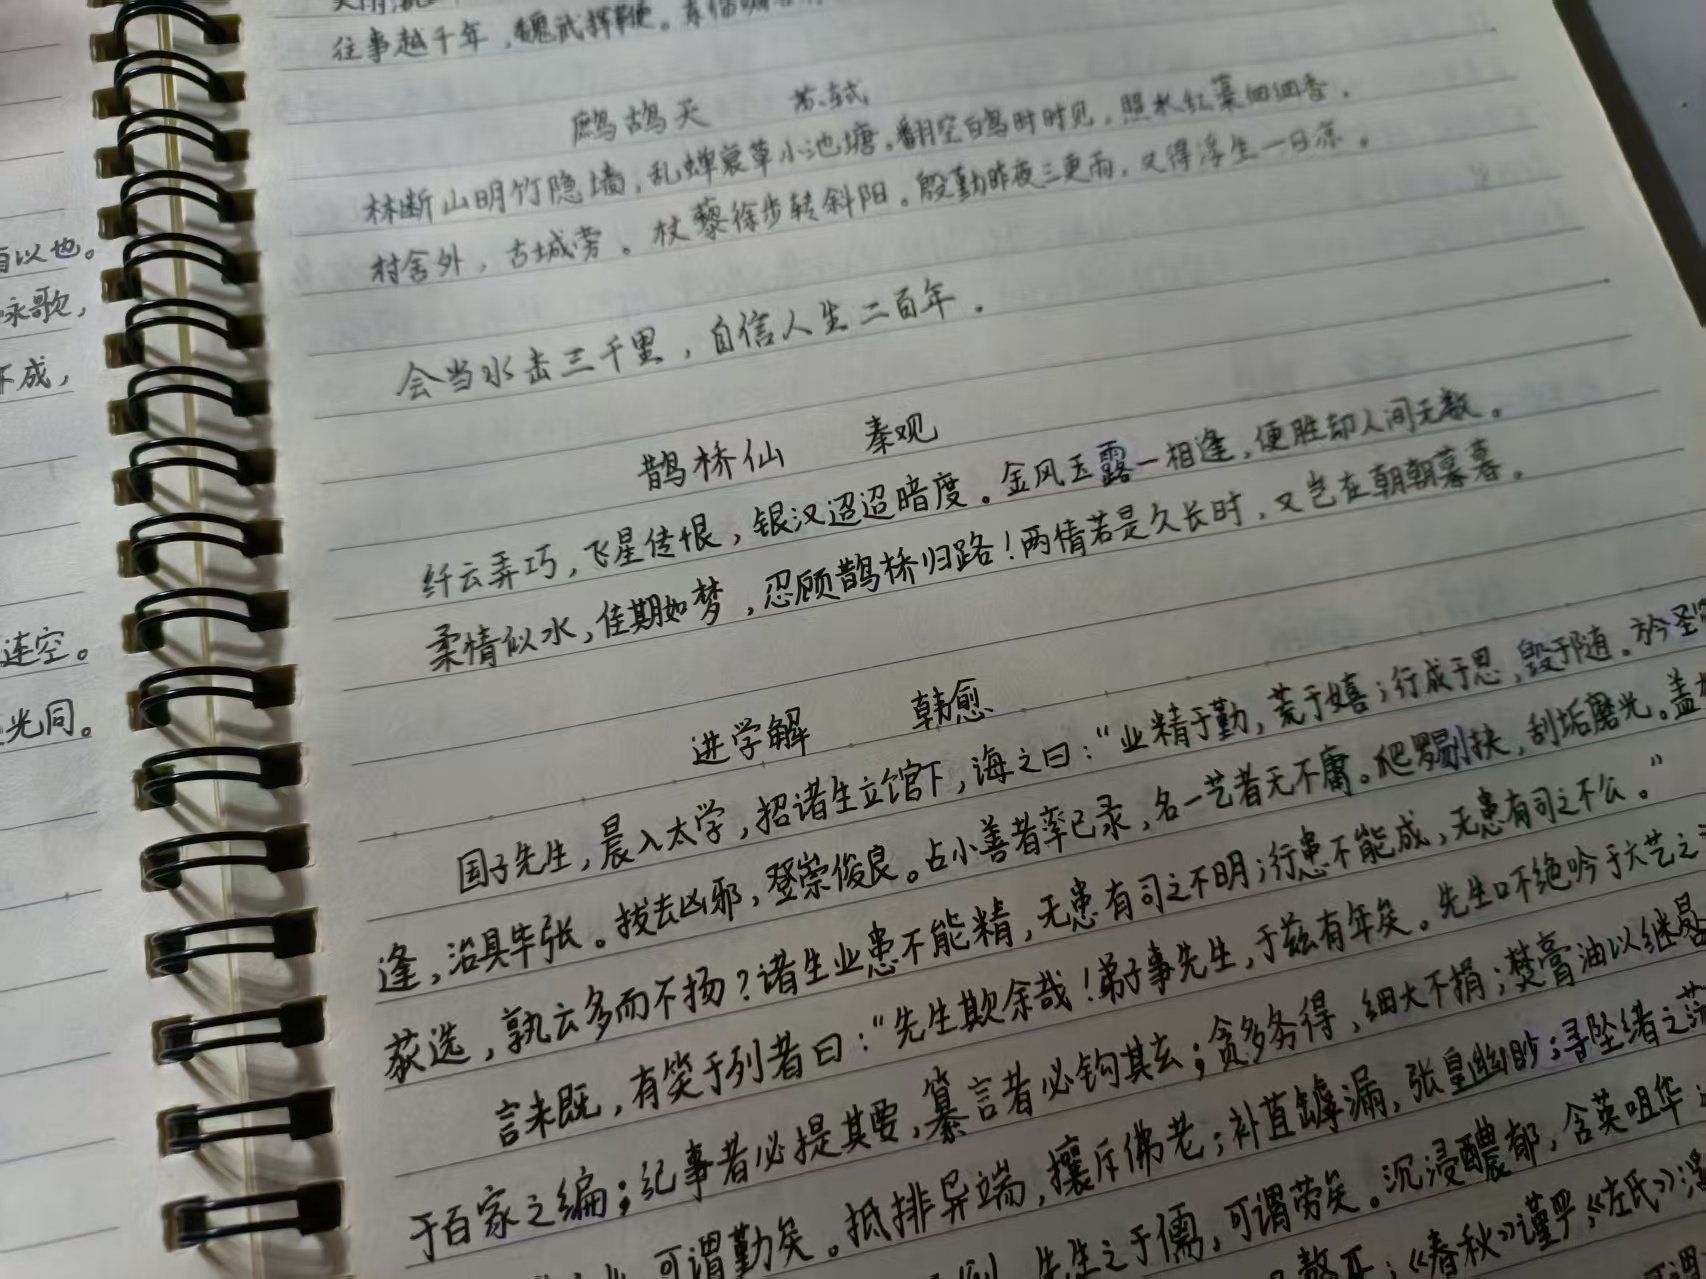 有以也。
咏歌,
不成,
连空。
光同。
往事越千年,魏武挥鞭。
鹧鸪天 苏轼
林断山明竹隐墙,乱蝉衰草小池塘。翻空白鸟时时见,照水红蕖细细香。
村舍外,古城旁。杖藜徐步转斜阳。殷勤昨夜三更雨,又得浮生一日凉。
会当水击三千里,自信人生二百年。
鹊桥仙 秦观
纤云弄巧,飞星传恨,银汉迢迢暗度。金风玉露一相逢,便胜却人间无数。
柔情似水,佳期如梦,忍顾鹊桥归路!两情若是久长时,又岂在朝朝暮暮。
进学解 韩愈
国子先生,晨入太学,招诸生立馆下,诲之曰:“业精于勤,荒于嬉;行成于思,毁于随。方今圣
逢,治具毕张。拔去凶邪,登崇俊良。占小善者率已录,名一艺者无不庸。爬罗剔抉,刮垢磨光。盖
获选,孰云多而不扬?诸生业患不能精,无患有司之不明;行患不能成,无患有司之不公。”
言未既,有笑于列者曰:“先生欺余哉!弟子事先生,于兹有年矣。先生口不绝吟于六艺之
于百家之编;纪事者必提其要,纂言者必钩其玄;贪多务得,细大不捐;焚膏油以继晷
可谓勤矣。抵排异端,攘斥佛老;补苴罅漏,张皇幽眇;寻坠绪之茫
先生之于儒,可谓劳矣。沉浸醲郁,含英咀华
《春秋》谨严,《左氏》浮